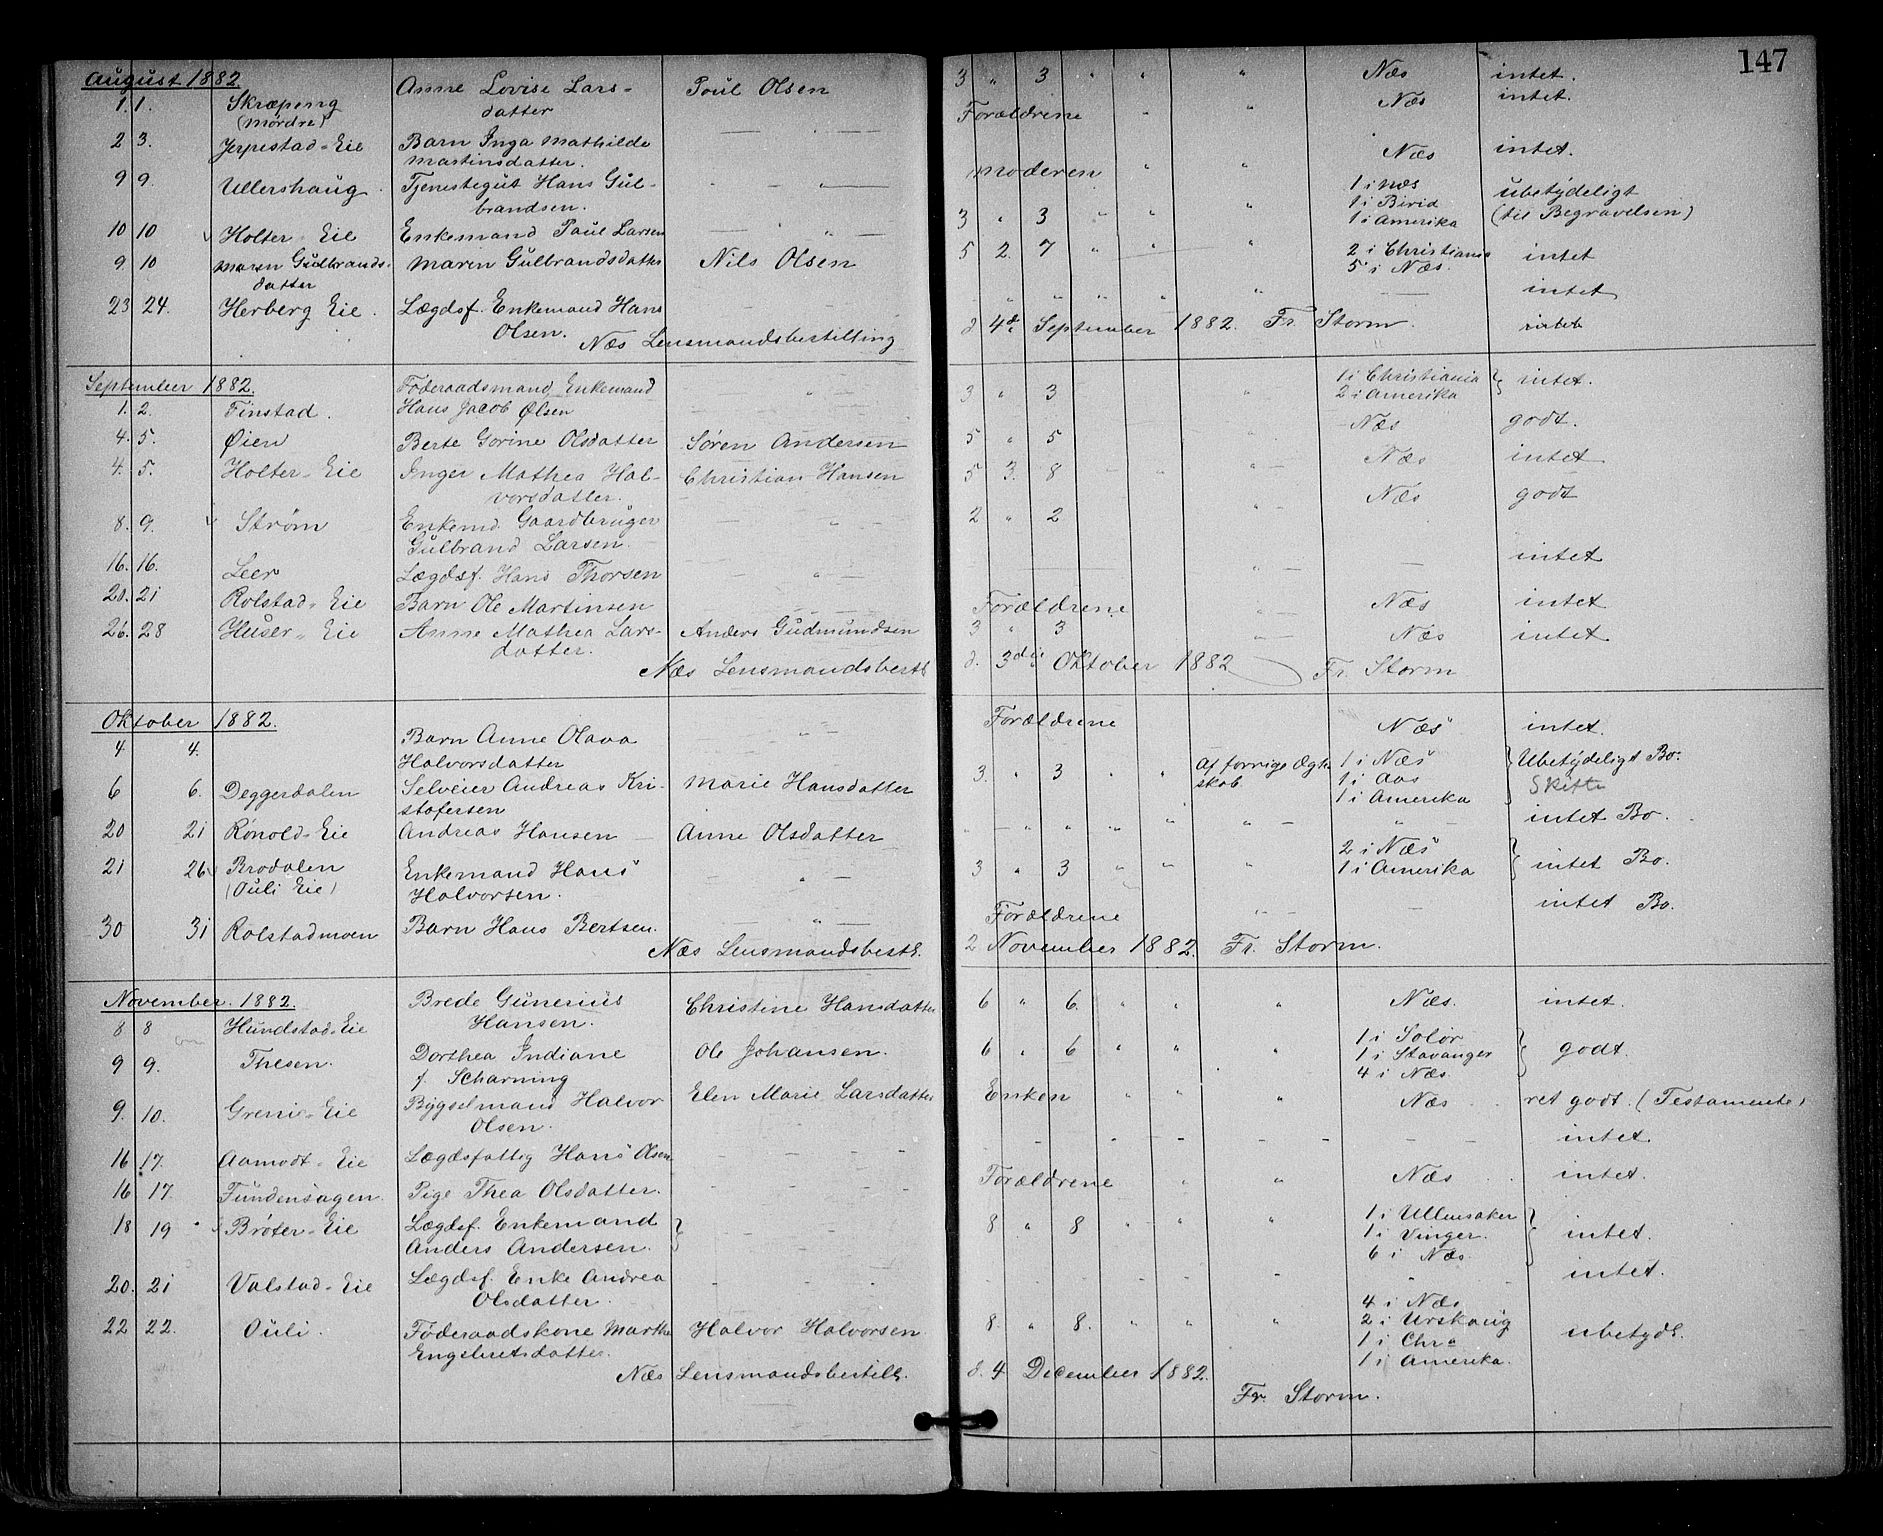 147
August 1882
1. 1. Skræpeng Anne Lovise Lars- Poul Olsen 3 " 3 " " " Næs intet.
(Mørdre) datter
2 3. Jerpestad-Eie Barn Inga Mathilde — " — Forældrene " " Næs intet.
Martinsdatter.
9 9. Ullershaug Tjenestegut Hans Gul- - - " — Moderen " " Næs intet.
brandsen.
10 10 Holter Eie Enkemand Paul Larsen — " " — 3 " 3 " " " 1 i Næs ubetydeligt
1 i Birid (til Begravelsen)
1 i Amerika
9. 10 Maren Gulbrands- Maren Gulbrandsdatter Nils Olsen 5 2. 7 " " " 2 i Christiania intet
datter 5 i Næs.
23 24. Herberg Eie. Lægdsf. Enkemand Hans " " " " " — intet
Olsen. intet
Næs Lensmandsbestilling d. 4de September 1882. Fr. Storm.
September 1882.
1. 2. Finstad. Føderaadsmand, Enkemand — " — 3 " 3 " 1 i Christiania } intet.
Hans Jacob Olsen 2 i Amerika
4. 5. Øien Berte Gorine Olsdatter Søren Andersen 5 " 5 " Næs godt.
4. 5. Holter-Eie Inger Mathea Hal- Christian Hansen 5 3. 8 " Næs intet
vorsdatter.
8. 9. Strøm Enkemd. Gaardbruger — " — 2 " 2 " Næs godt
Gulbrand Larsen.
16. 16. Leer Lægdsf. Hans Thorsen — " — " — — intet
20. 21 Rolstad-Eie Barn Ole Martinsen Forældrene " Næs intet
26. 28 Huser-Eie Anne Mathea Lars- Anders Gudmundsen 3 " 3 " Næs intet
datter.
Næs Lensmandsbestl. d. 3die Oktober 1882 Fr. Storm
Oktober 1882.
4 4. Barn Anne Olava — " — Forældrene Næs intet.
Halvorsdatter
6 6. Deggerdalen Selveier Andreas Kri- Marie Hansdatter 3. " 3 " " Af forrige Ægte- 1 i Næs } Ubetydeligt Bo.
stofersen skab. 1 i Aas Skifte
1 i Amerika
20 21 Rønold-Eie Andreas Hansen — Anne Olsdatter - - " " " " " — " — intet Bo.
21 26 Brodalen Enkemand Hans — " — 3 " 3 " " " 2 i Næs } intet Bo.
(Ouli Eie) Halvorsen. 1 i Amerika
30 31 Rolstadmoen Barn Hans Bertsen. — " — Forældrene " — — intet Bo.
Næs Lensmandsbestl. 2 November 1882. Fr. Storm.
November. 1882.
8 8 Hundstad-Eie Brede Gunerius Christine Hansdatter 6 " 6. " " " Næs. intet.
Hansen.
9 9. Thesen. Dorthea Indiane Ole Johansen. 6 " 6 " " " 1 i Solør } godt.
f. Scharning 1 i Stavanger
4 i Næs
9. 10. Grenie-Eie Bygselmand Halvor Elen Marie Larsdatter Enken " " " Næs ret godt. (Testamente)
Olsen.
16 17. Aamodt-Eie Lægdsfattig Hans Olsen - - - - - - - - - - intet.
16 17. Fundensagen. Pige Thea Olsdatter. - - - - Forældrene " " Næs intet.
18 19 Brøter-Eie Lægdsf. Enkemand } - - - 8 " 8 " " " 1 i Ullensaker } intet.
Anders Andersen. 1 i Vinger.
6 i Næs
20. 21 Valstad-Eie Lægdsf. Enke Andrea - - - - - - - - - " - intet.
Olsdatter.
22 22. Ouli. Føderaadskone Marthe Halvor Halvorsen. 8. " 8. " " " 4 i Næs ubetydl.
Engebretsdatter. 2 i Urskoug
1 i Chra
1 i Amerika.
Næs Lensmandsbestill. d. 4 December 1882.
Fr. Storm.